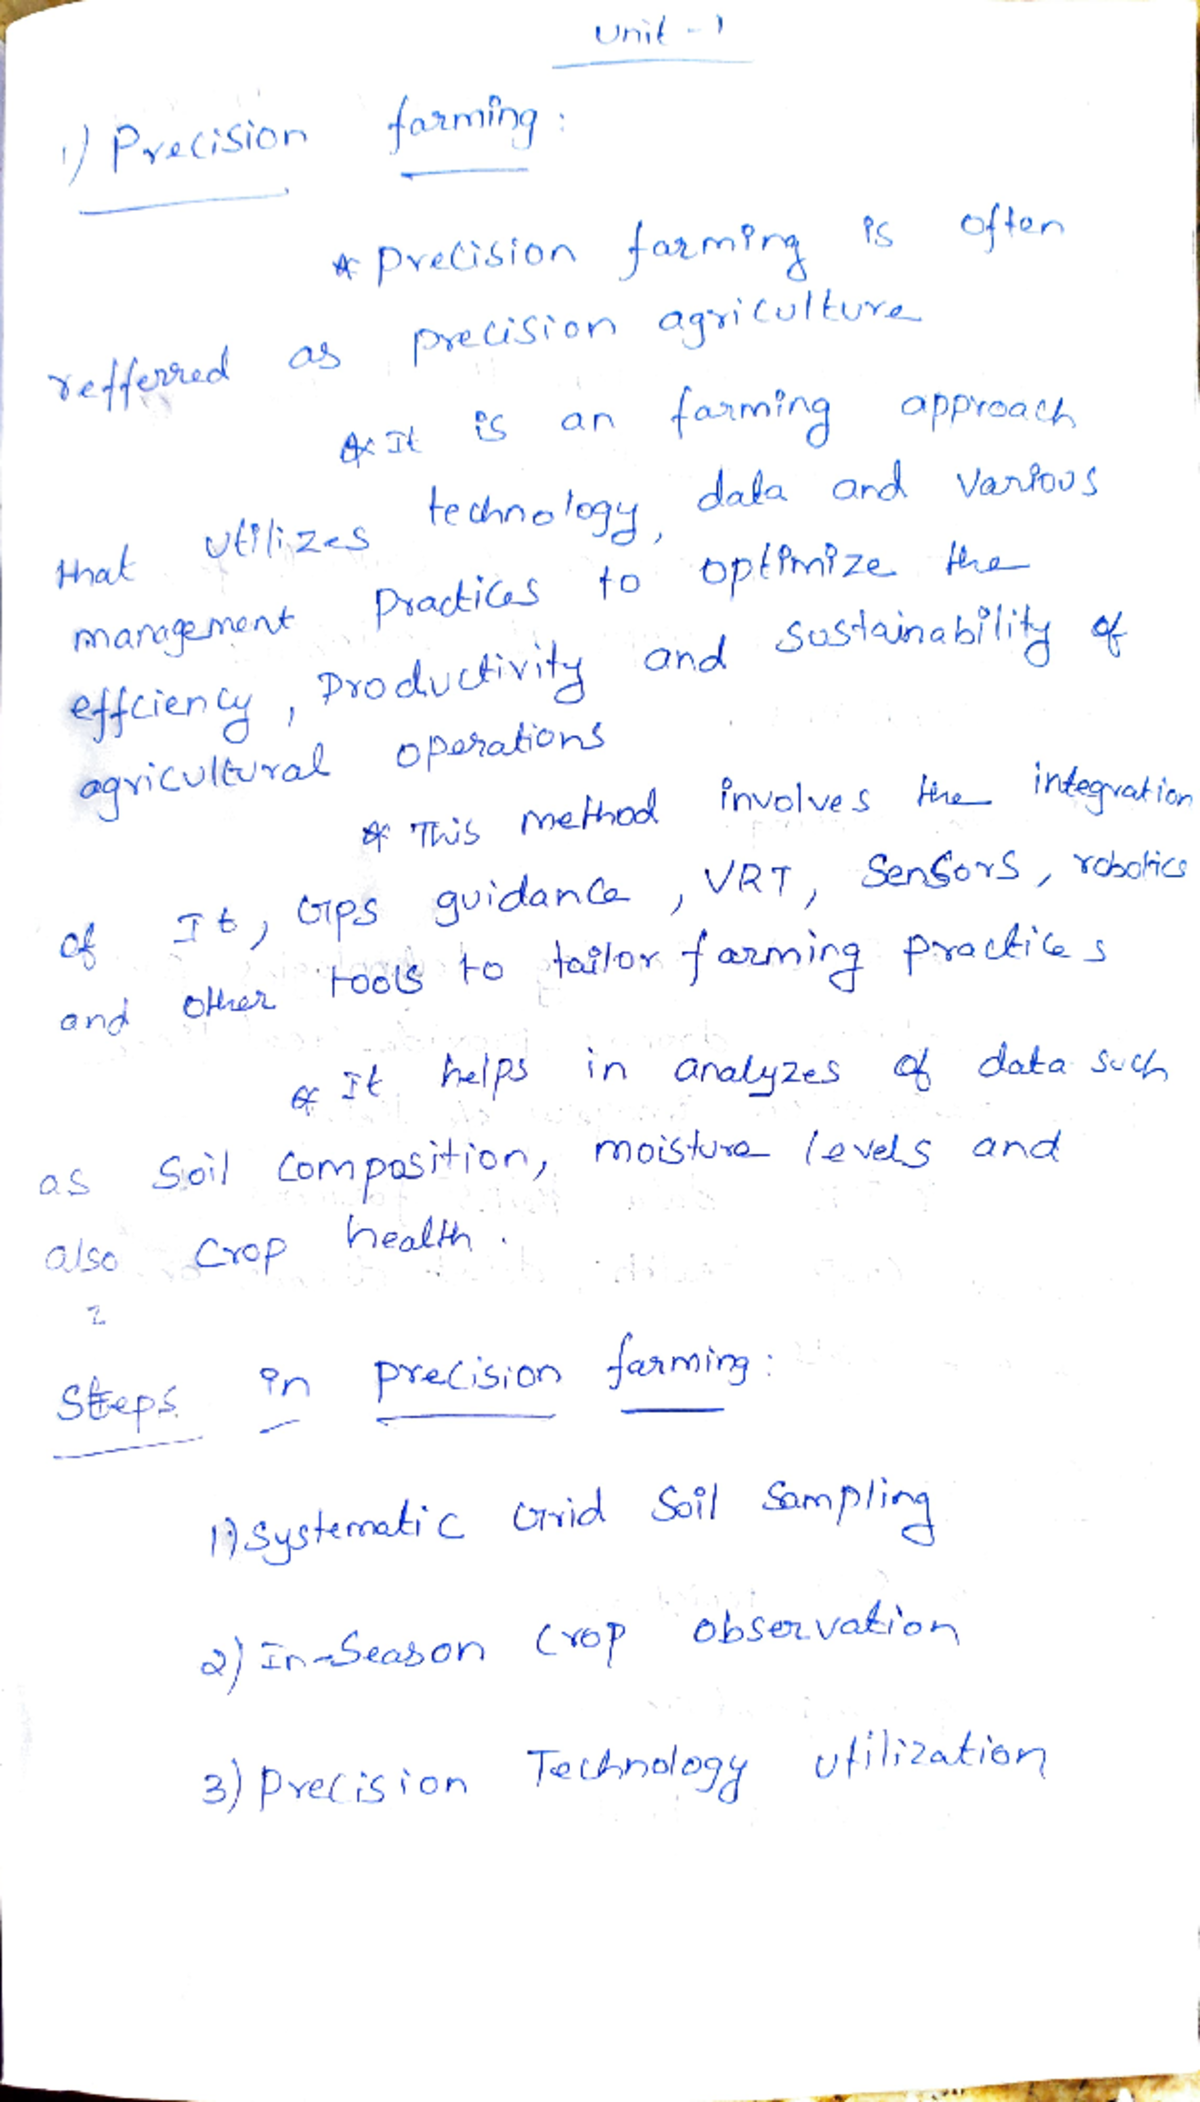 Unit - 1
1) Precision farming :
* Precision farming is often
refferred as precision agriculture
* It is an farming approach
that utilizes technology, data and various
management Practices to optimize the
effciency, Productivity and sustainability of
agricultural operations
* This method involves the integration
of It, GPS guidance, VRT, Sensors, robotics
and other tools to tailor farming practices
* It helps in analyzes of data such
as Soil Composition, moisture levels and
also Crop health.
2
Steps in precision farming :
1) Systematic Grid Soil Sampling
2) In-Season Crop observation
3) Precision Technology utilization